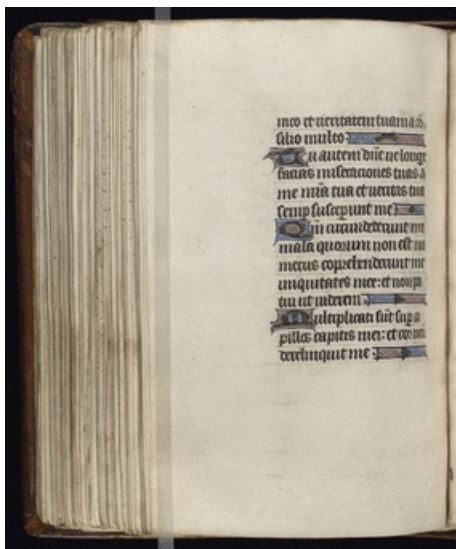 meo et ueritatem tuam a cō
silio multo
Tu autem dn̄e ne longe
facias miseraciones tuas a
me mīa tua et ueritas tua
semp susceperunt me
Qm̄ circumdederunt me
mala quorum non est nu
merus coprehenderunt me
iniquitates mee: et non po
tui ut uiderem
Multiplicati sūt sup ca
pillos capitis mei: et cor meū
dereliquit me